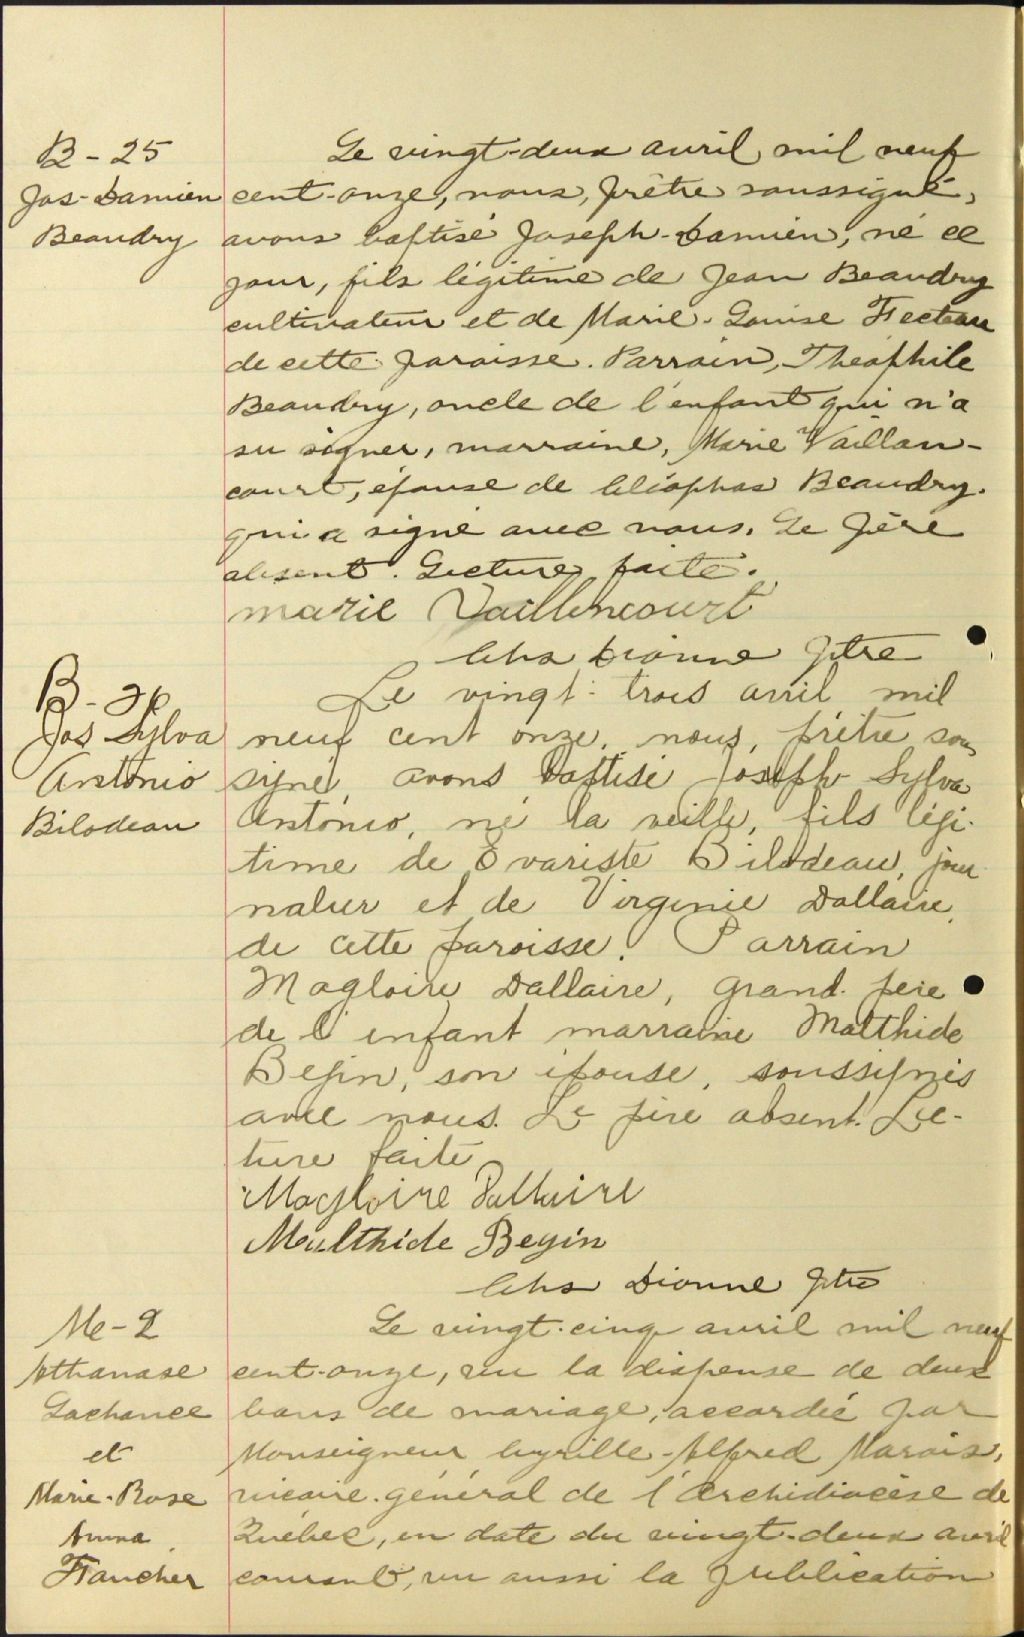 B - 25
Jos-Damien
Beaudry
Le vingt-deux avril mil neuf
cent-onze, nous, prêtre soussigné,
avons baptisé Joseph-Damien, né ce
jour, fils légitime de Jean Beaudry
cultivateur et de Marie-Louise Fecteau
de cette paroisse. Parrain, Théophile
Beaudry, oncle de l'enfant qui n'a
su signer, marraine, Marie Vaillan-
court, épouse de Cléophas Beaudry.
qui a signé avec nous. Le père
absent. Lecture faite.
Marie Vaillencourt
Chs Dionne ptre
B - 26
Jos Sylva
Antonio
Bilodeau
Le vingt-trois avril mil
neuf cent onze, nous, prêtre sous
signé, avons baptisé Joseph Sylva
Antonio, né la veille, fils légi-
time de Evariste Bilodeau, jour
nalier et de Virginie Dallaire,
de cette paroisse. Parrain
Magloire Dallaire, grand-père
de l'enfant marraine Malthide
Begin, son épouse, soussignés
avec nous. Le père absent. Lec-
ture faite
Magloire Dallaire
Malthide Begin
Chs Dionne ptre
M - 2
Athanase
Lachance
et
Marie-Rose
Anna
Faucher
Le vingt-cinq avril mil neuf
cent-onze, vu la dispense de deux
bans de mariage, accordée par
Monseigneur Cyrille-Alfred Marois,
vicaire-général de l'Archidiocèse de
Québec, en date du vingt-deux avril
courant, vu aussi la publication